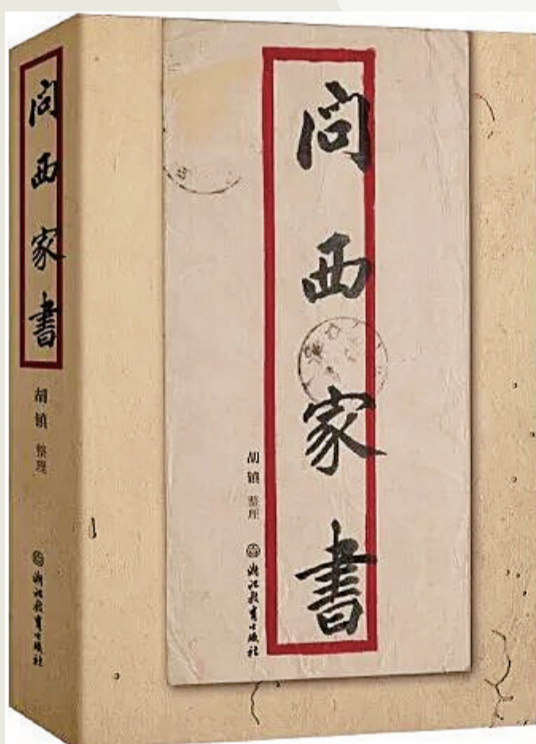 问西家書
胡镇 整理
浙江教育出版社
问西家書
胡镇 整理
浙江教育出版社